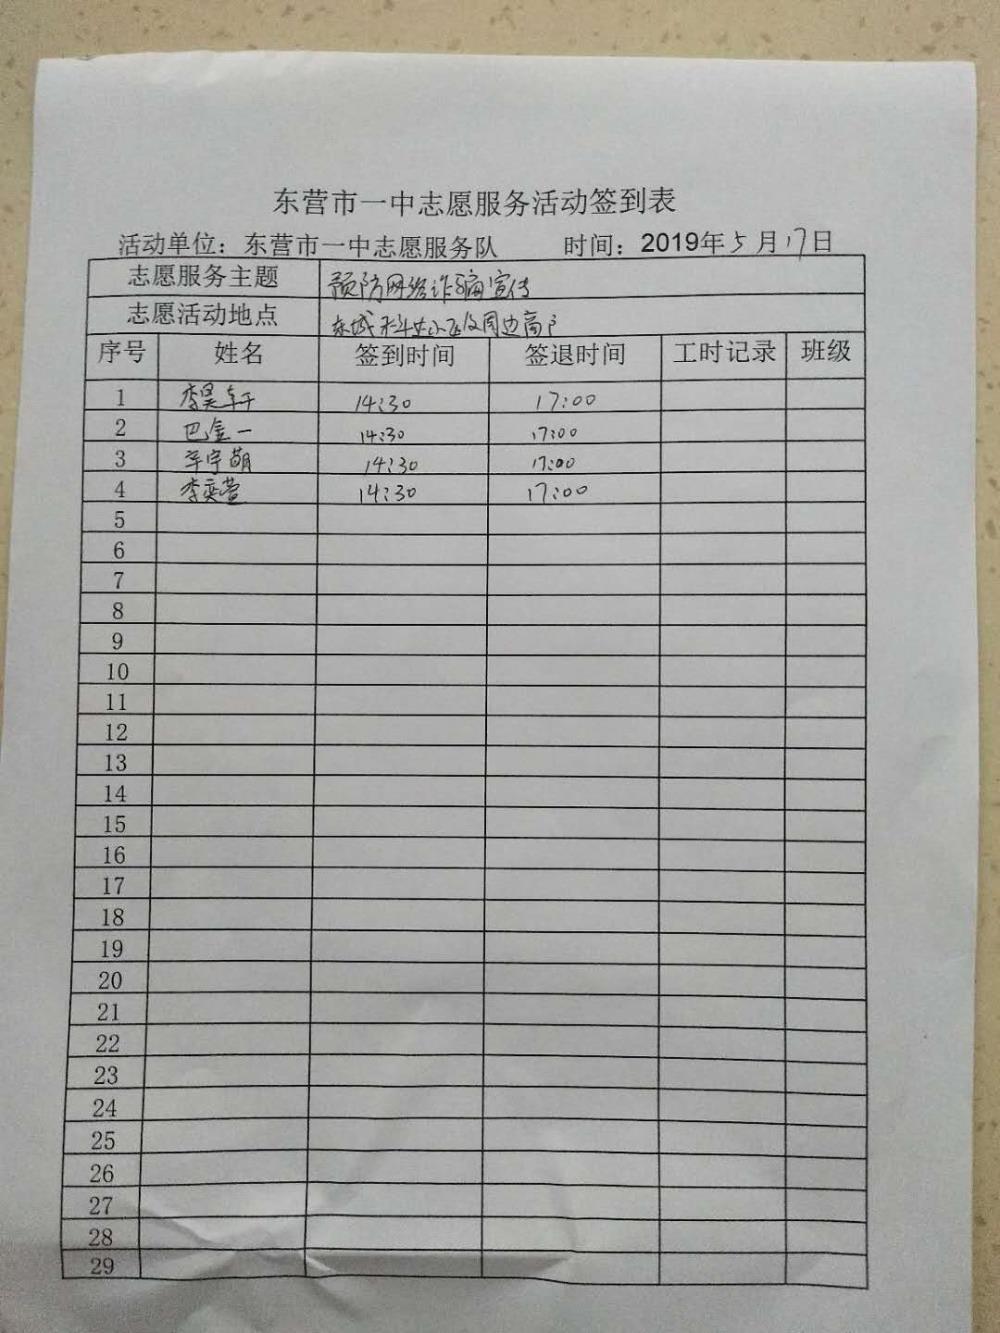 东营市一中志愿服务活动签到表
活动单位：东营市一中志愿服务队 时间：2019年5月17日
志愿服务主题 预防网络诈骗宣传
志愿活动地点 东城 小区及周边商户
序号 姓名 签到时间 签退时间 工时记录 班级
1 李昊轩 14:30 17:00
2 巴金一 14:30 17:00
3 宇萌 14:30 17:00
4 李奕萱 14:30 17:00
5
6
7
8
9
10
11
12
13
14
15
16
17
18
19
20
21
22
23
24
25
26
27
28
29